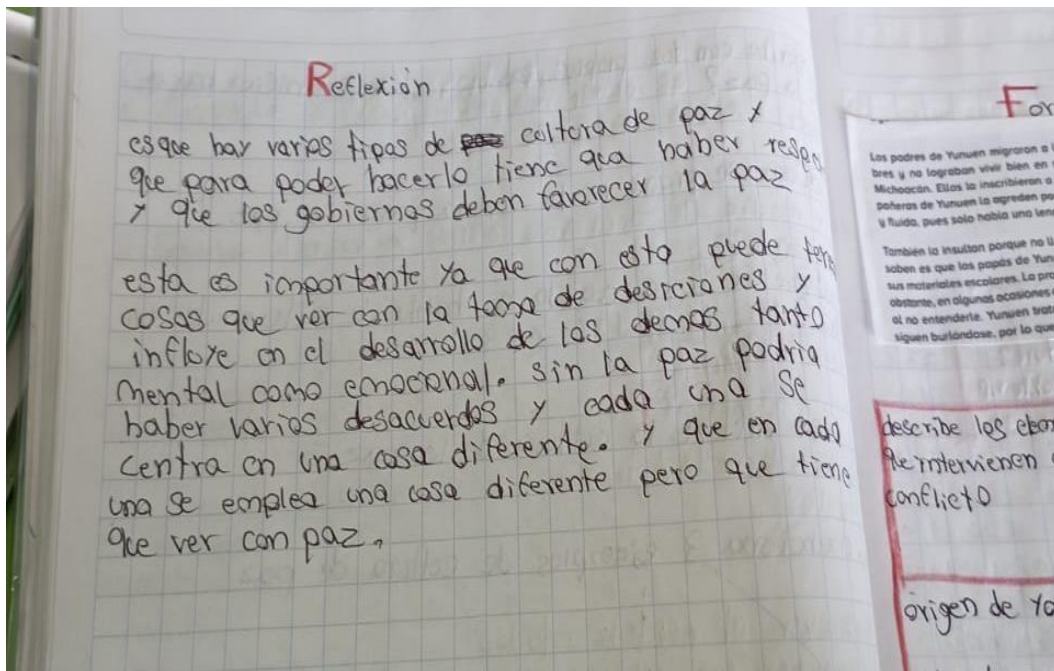 Reflexión
es que hay varios tipos de cultura de paz y
que para poder hacerlo tiene que haber respe
y que los gobiernos deben favorecer la paz
esta es importante ya que con esto puede ten
cosas que ver con la toma de desiciones y
influye en el desarrollo de los demas tanto
mental como emocional. sin la paz podria
haber varios desacuerdos y cada una se
centra en una cosa diferente. y que en cada
una se emplea una cosa diferente pero que tiene
que ver con paz.
For
Los padres de Yunuen migraron a
bres y no lograban vivir bien en
Michoacán. Ellos la inscribieron a
pañeras de Yunuen la agreden po
y fluida, pues solo habla una len
También la insultan porque no ll
saben es que los papás de Yun
sus materiales escolares. La pro
obstante, en algunas ocasiones
al no entenderle. Yunuen trat
siguen burlándose, por lo que
describe los
que intervienen
conflicto
origen de